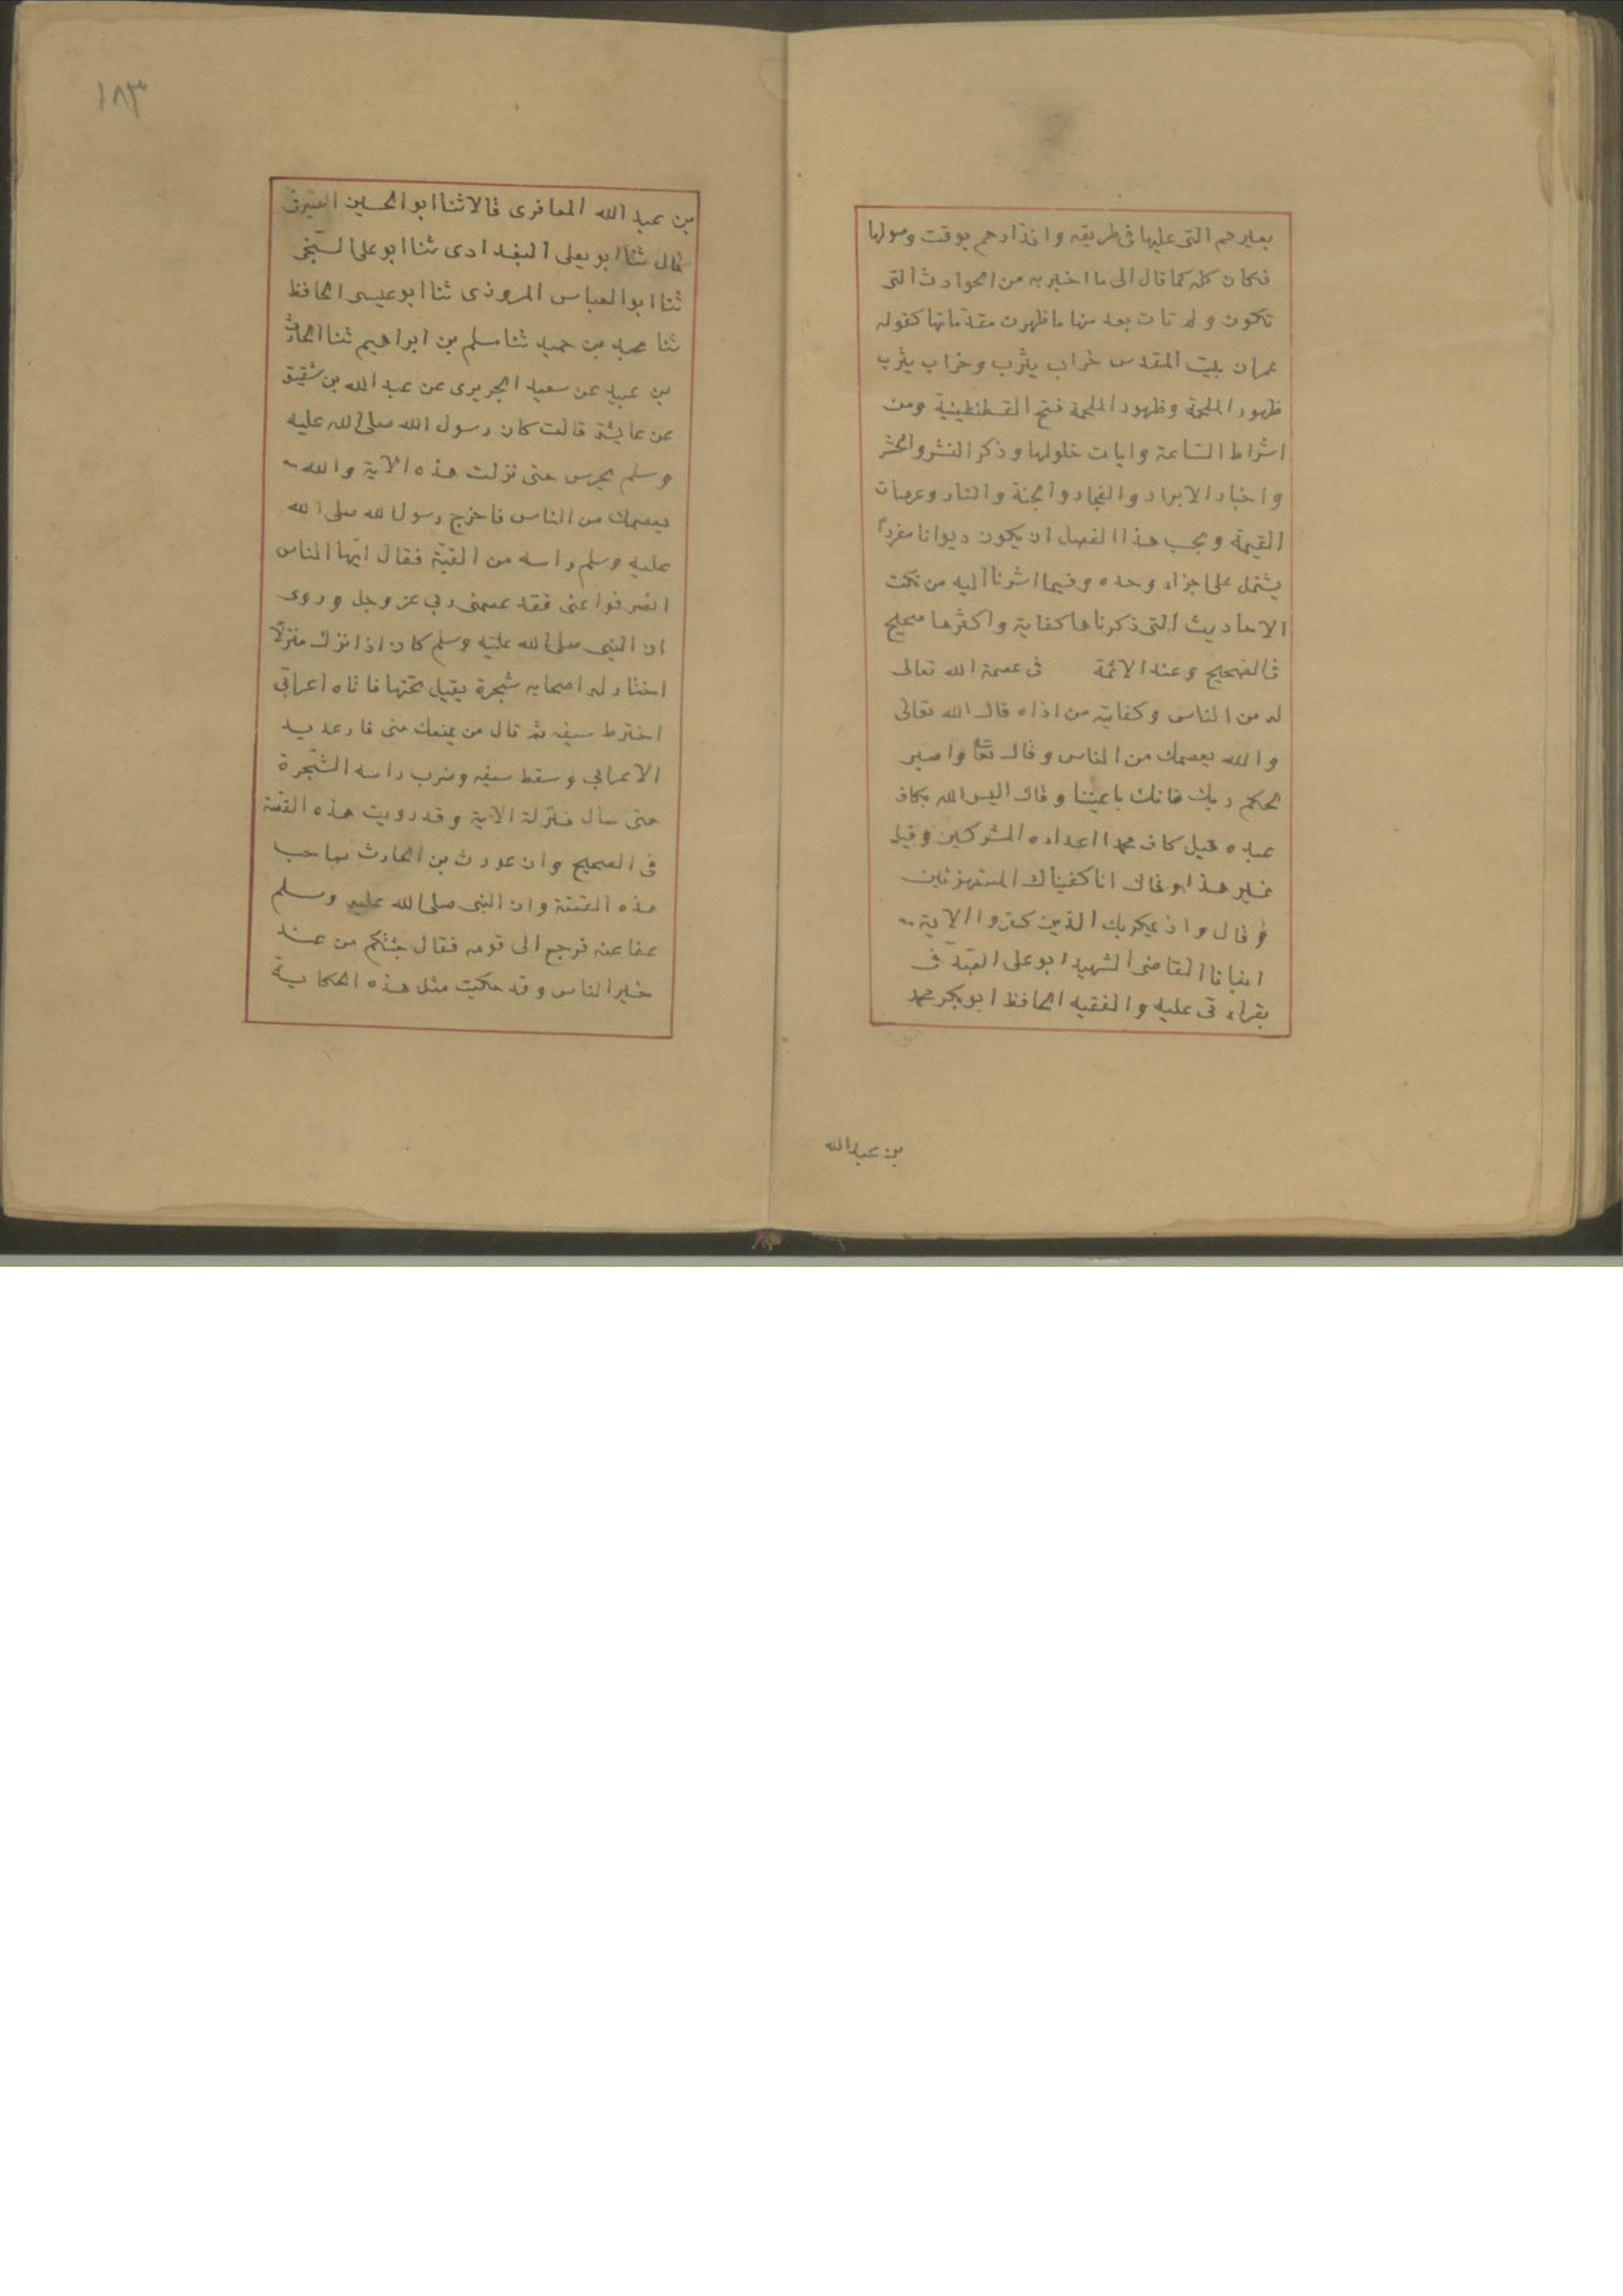 بعيرهم التى عليها فى طريقه وانذارهم بوقت وصولها
فكان كله كما قال الى ما اخبر به من الحوادث التى
تكون ولم تات بعد منها ما ظهرت مقدماتها كقوله
عمران بيت المقدس خراب يثرب وخراب يثرب
ظهور الملحمة وظهور الملحمة فتح القسطنطينية ومن
اشراط الساعة وايات حلولها وذكر النشر والحشر
واخبار الابرار والفجار والجنة والنار وعرصات
القيمة وبحسب هذا الفصل ان يكون ديوانا مفردا
يشتمل على اجزاء وحده وفيما اشرنا اليه من نكت
الاحاديث التى ذكرناها كفاية واكثرها صحيح
فى الصحيح وعند الائمة فى عصمة الله تعالى
له من الناس وكفايته من اذاه قال الله تعالى
والله يعصمك من الناس وقال تعا واصبر
لحكم ربك فانك باعيننا وقال اليس الله بكاف
عبده قيل كاف محمدا اعداءه المشركين وقيل
غير هذا وقال انا كفيناك المستهزئين
وقال واذ يمكر بك الذين كفروا الاية
اخبانا القاضى الشهيد ابو على الصدفى
بقراءتى عليه والفقيه الحافظ ابو بكر محمد
بن عبد الله
١٨٣
بن عبد الله المعافرى قالا ثنا ابو الحسين الصيرفى
قال ثنا ابو يعلى البغدادى ثنا ابو على السنجى
ثنا ابو العباس المروذى ثنا ابو عيسى الحافظ
ثنا عبد بن حميد ثنا مسلم بن ابراهيم ثنا الحارث
بن عبيد عن سعيد الجريرى عن عبد الله بن شقيق
عن عايشة قالت كان رسول الله صلى الله عليه
وسلم يحرس حتى نزلت هذه الاية والله
يعصمك من الناس فاخرج رسول الله صلى الله
عليه وسلم راسه من القبة فقال ايها الناس
انصرفوا عنى فقد عصمنى ربى عز وجل وروى
ان النبى صلى الله عليه وسلم كان اذا نزل منزلا
اختار له اصحابه شجرة يقيل تحتها فاتاه اعرابى
اخترط سيفه ثم قال من يمنعك منى فارعد يد
الاعرابى وسقط سيفه وضرب راسه الشجرة
حتى سال فنزلة الاية وقد رويت هذه القصة
فى الصحيح وان غورث بن الحارث صاحب
هذه القصة وان النبى صلى الله عليه وسلم
عفا عنه فرجع الى قومه فقال جئتكم من عند
خير الناس وقد حكيت مثل هذه الحكاية